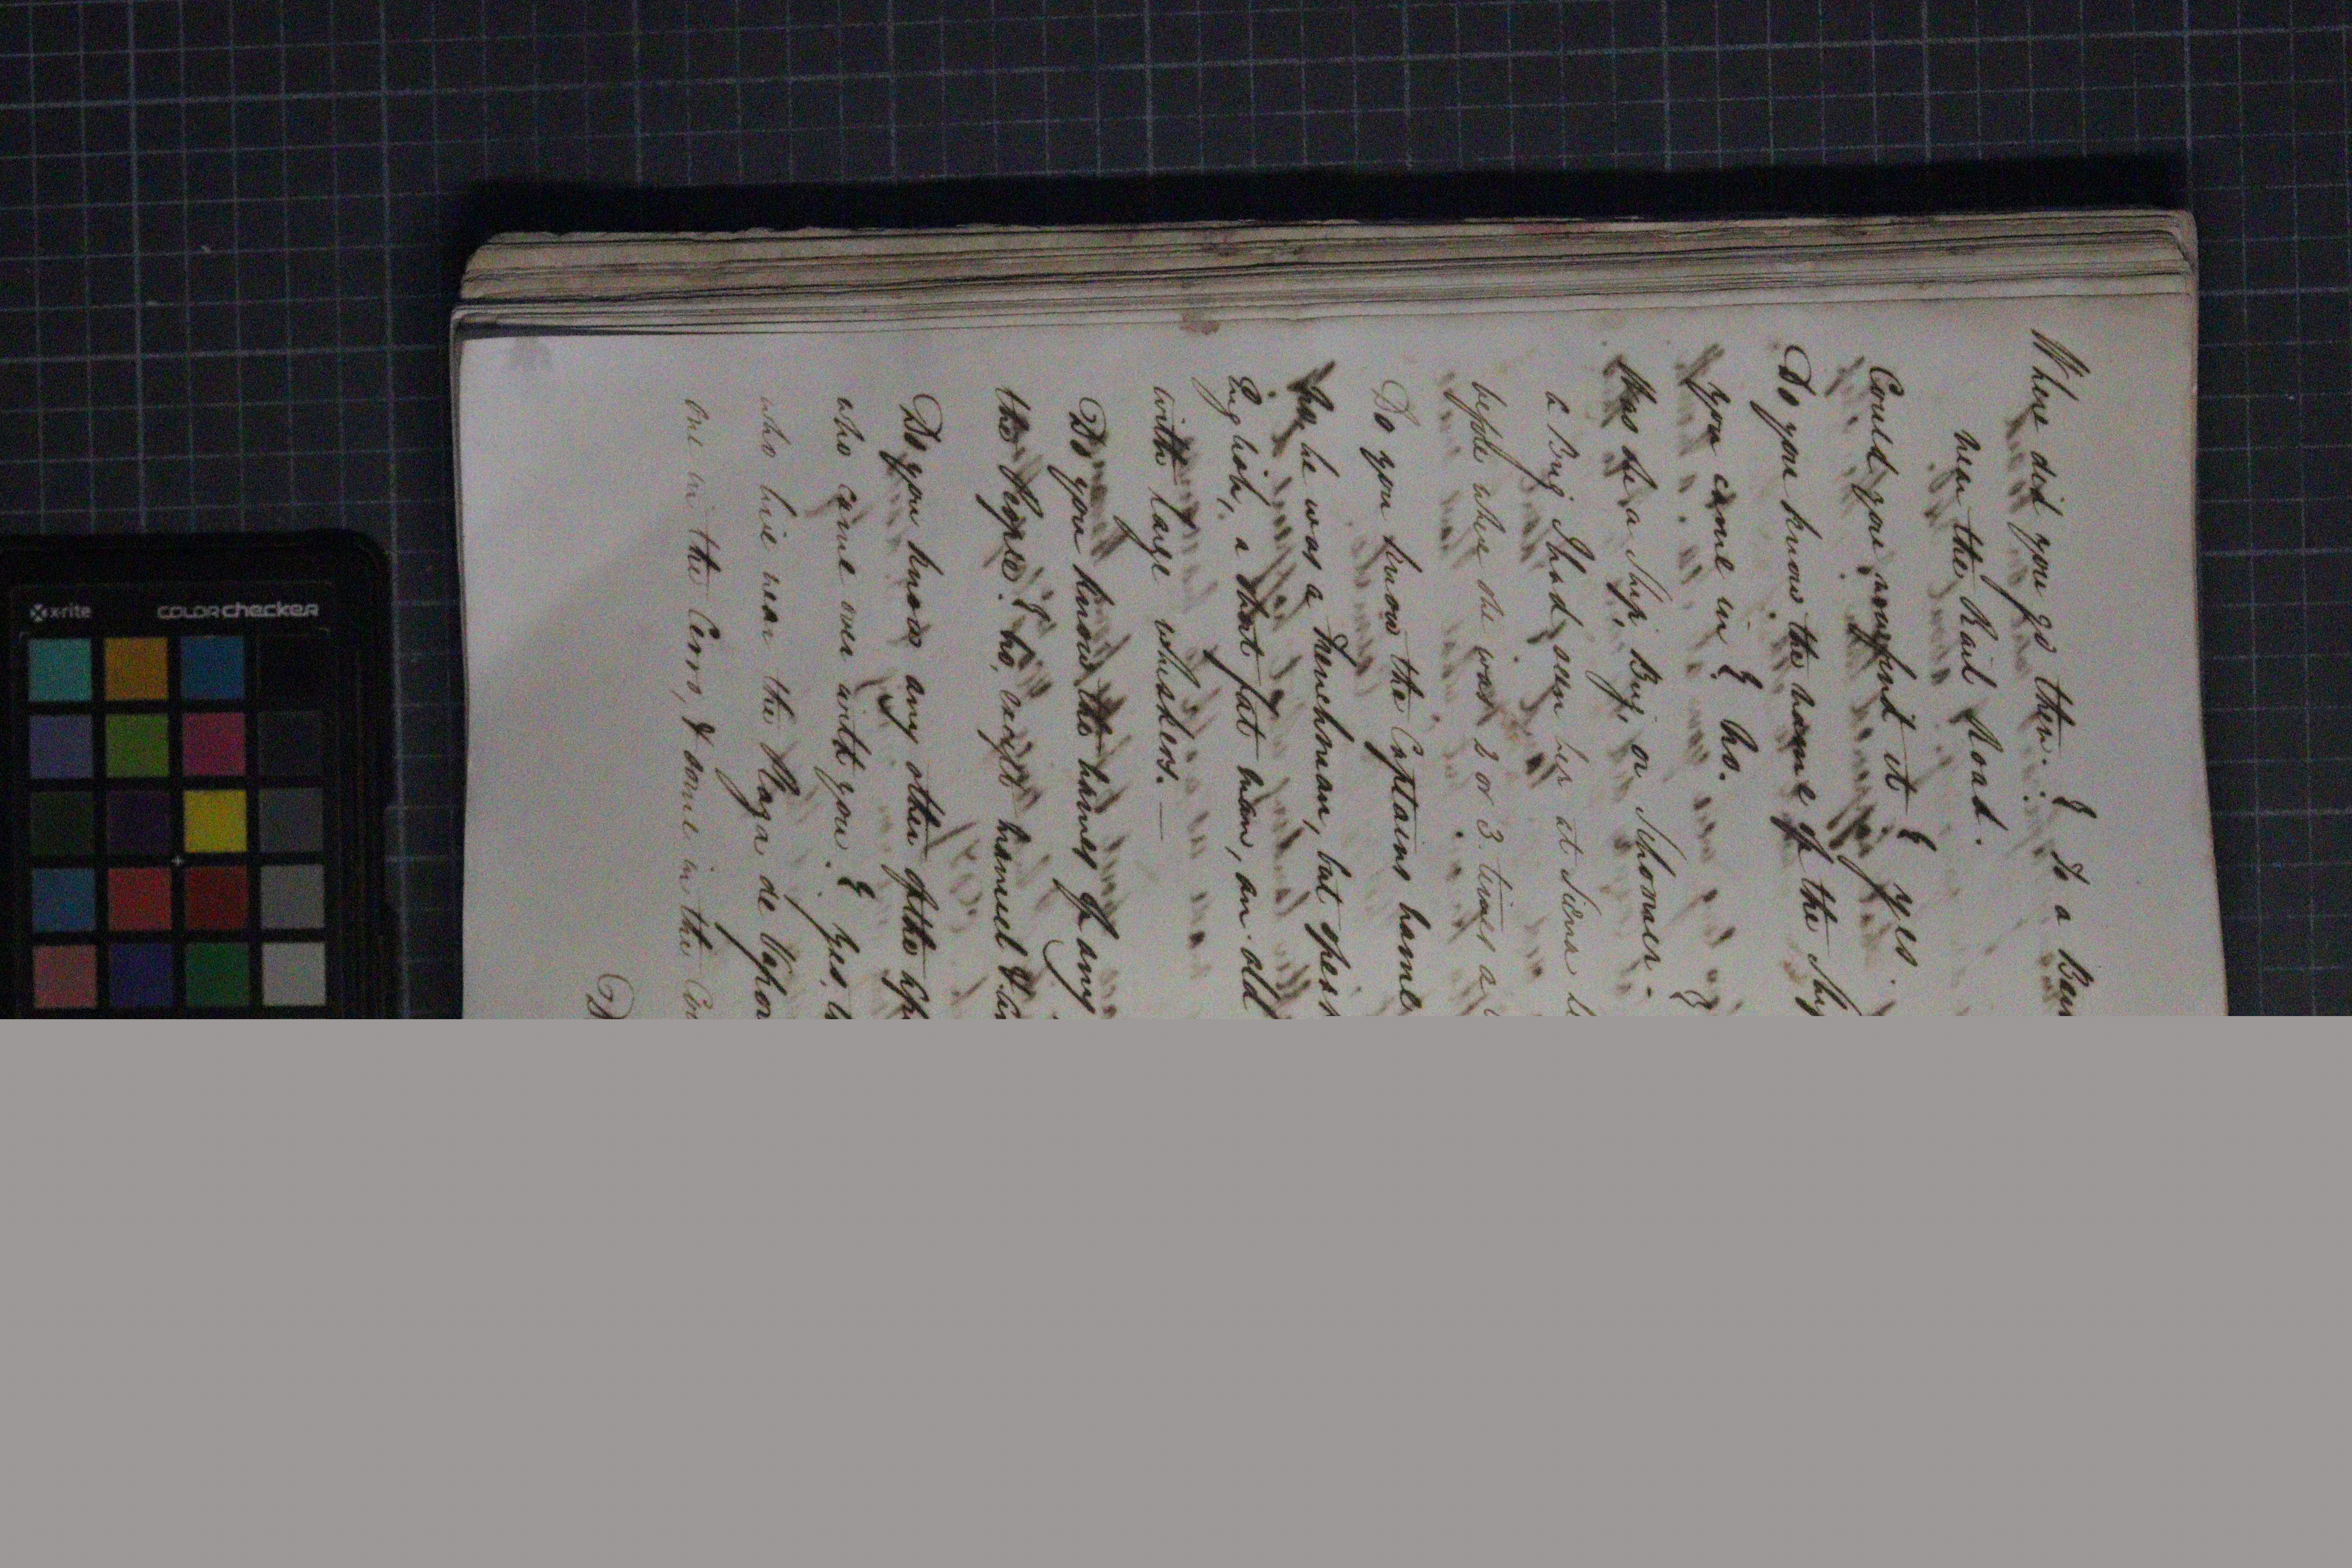 Where did you go then. } To a
near the Rail Road.
Could you now find it } yes.
Do you know the name of the Ship
you came in } No.
Was she a Ship, Brig, or Schooner -
a Brig I had seen her at Sierra
before when she was 2 or 3 times a
Do you know the Captains name
No, he was a Frenchman, but
English, a short fat man, an old
with large whiskers. —
Do you know the names of any of
the People. } No, except Manuel
Do you know any other of the
who came over with you. } Yes,
who live near the Plaza de
one in the Cerro, & some in the
x-rite
COLORchecker